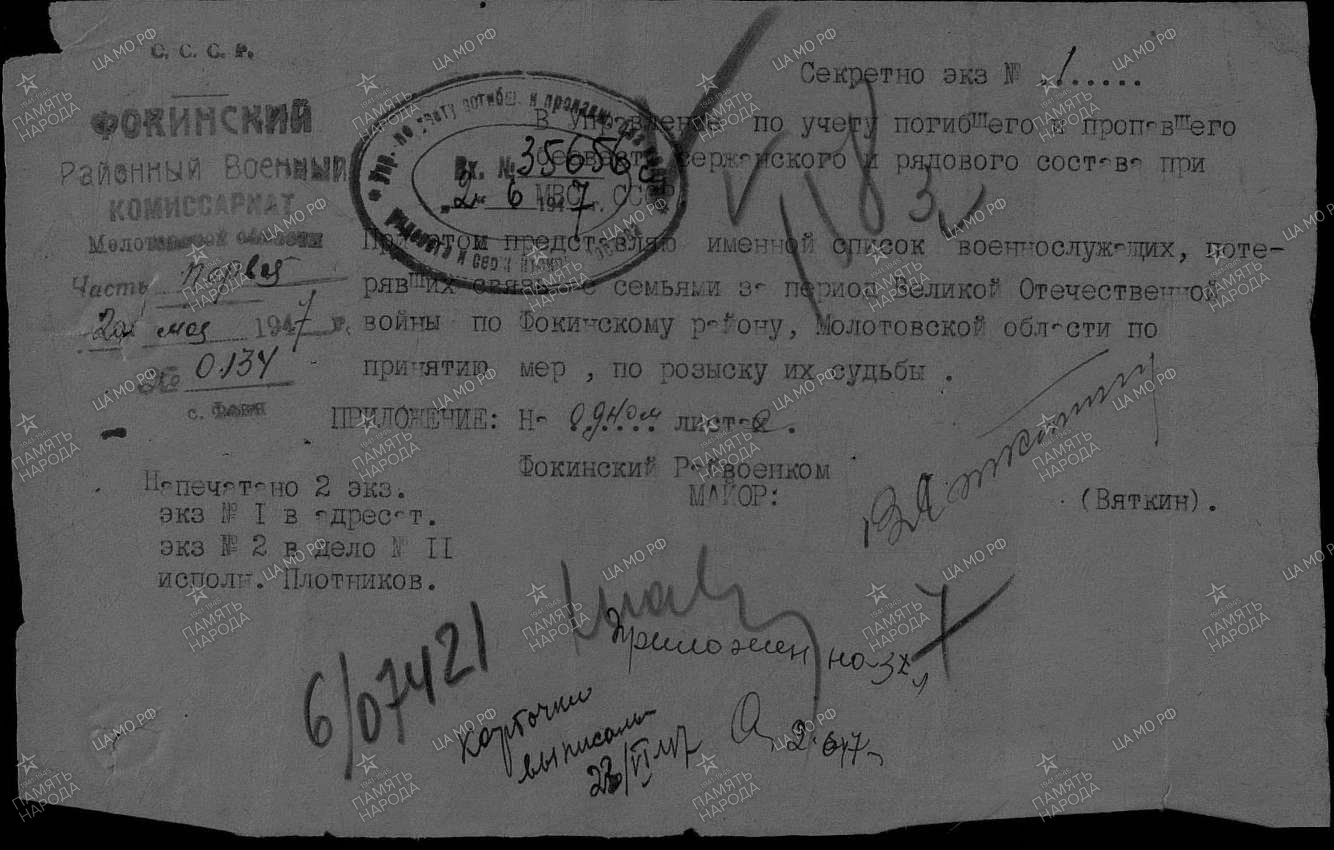 С. С. С. Р.
ФОКИНСКИЙ
Районный Военный
КОМИССАРИАТ
Молотовской области
Часть первая
20 мая 1947 г.
№ 0134
с. Фоки
Секретно экз № 1.....
В Управление по учету погибшего и пропавшего
сержанского и рядового состава при
МВС СССР
Вх. № 35656
2 6 1947 г.
При этом представляю именной список военнослужащих, поте-
рявших связь с семьями за период Великой Отечественной
войны по Фокинскому району, Молотовской области по
принятию мер , по розыску их судьбы .
ПРИЛОЖЕНИЕ: На одном листе .
Фокинский Райвоенком
МАЙОР:
(Вяткин).
Напечатано 2 экз.
экз № I в адресат.
экз № 2 в дело № II
исполн. Плотников.
6/07421
Приложен на 3х
карточки
выписаны
ЦА МО РФ
ПАМЯТЬ НАРОДА
1941-1945